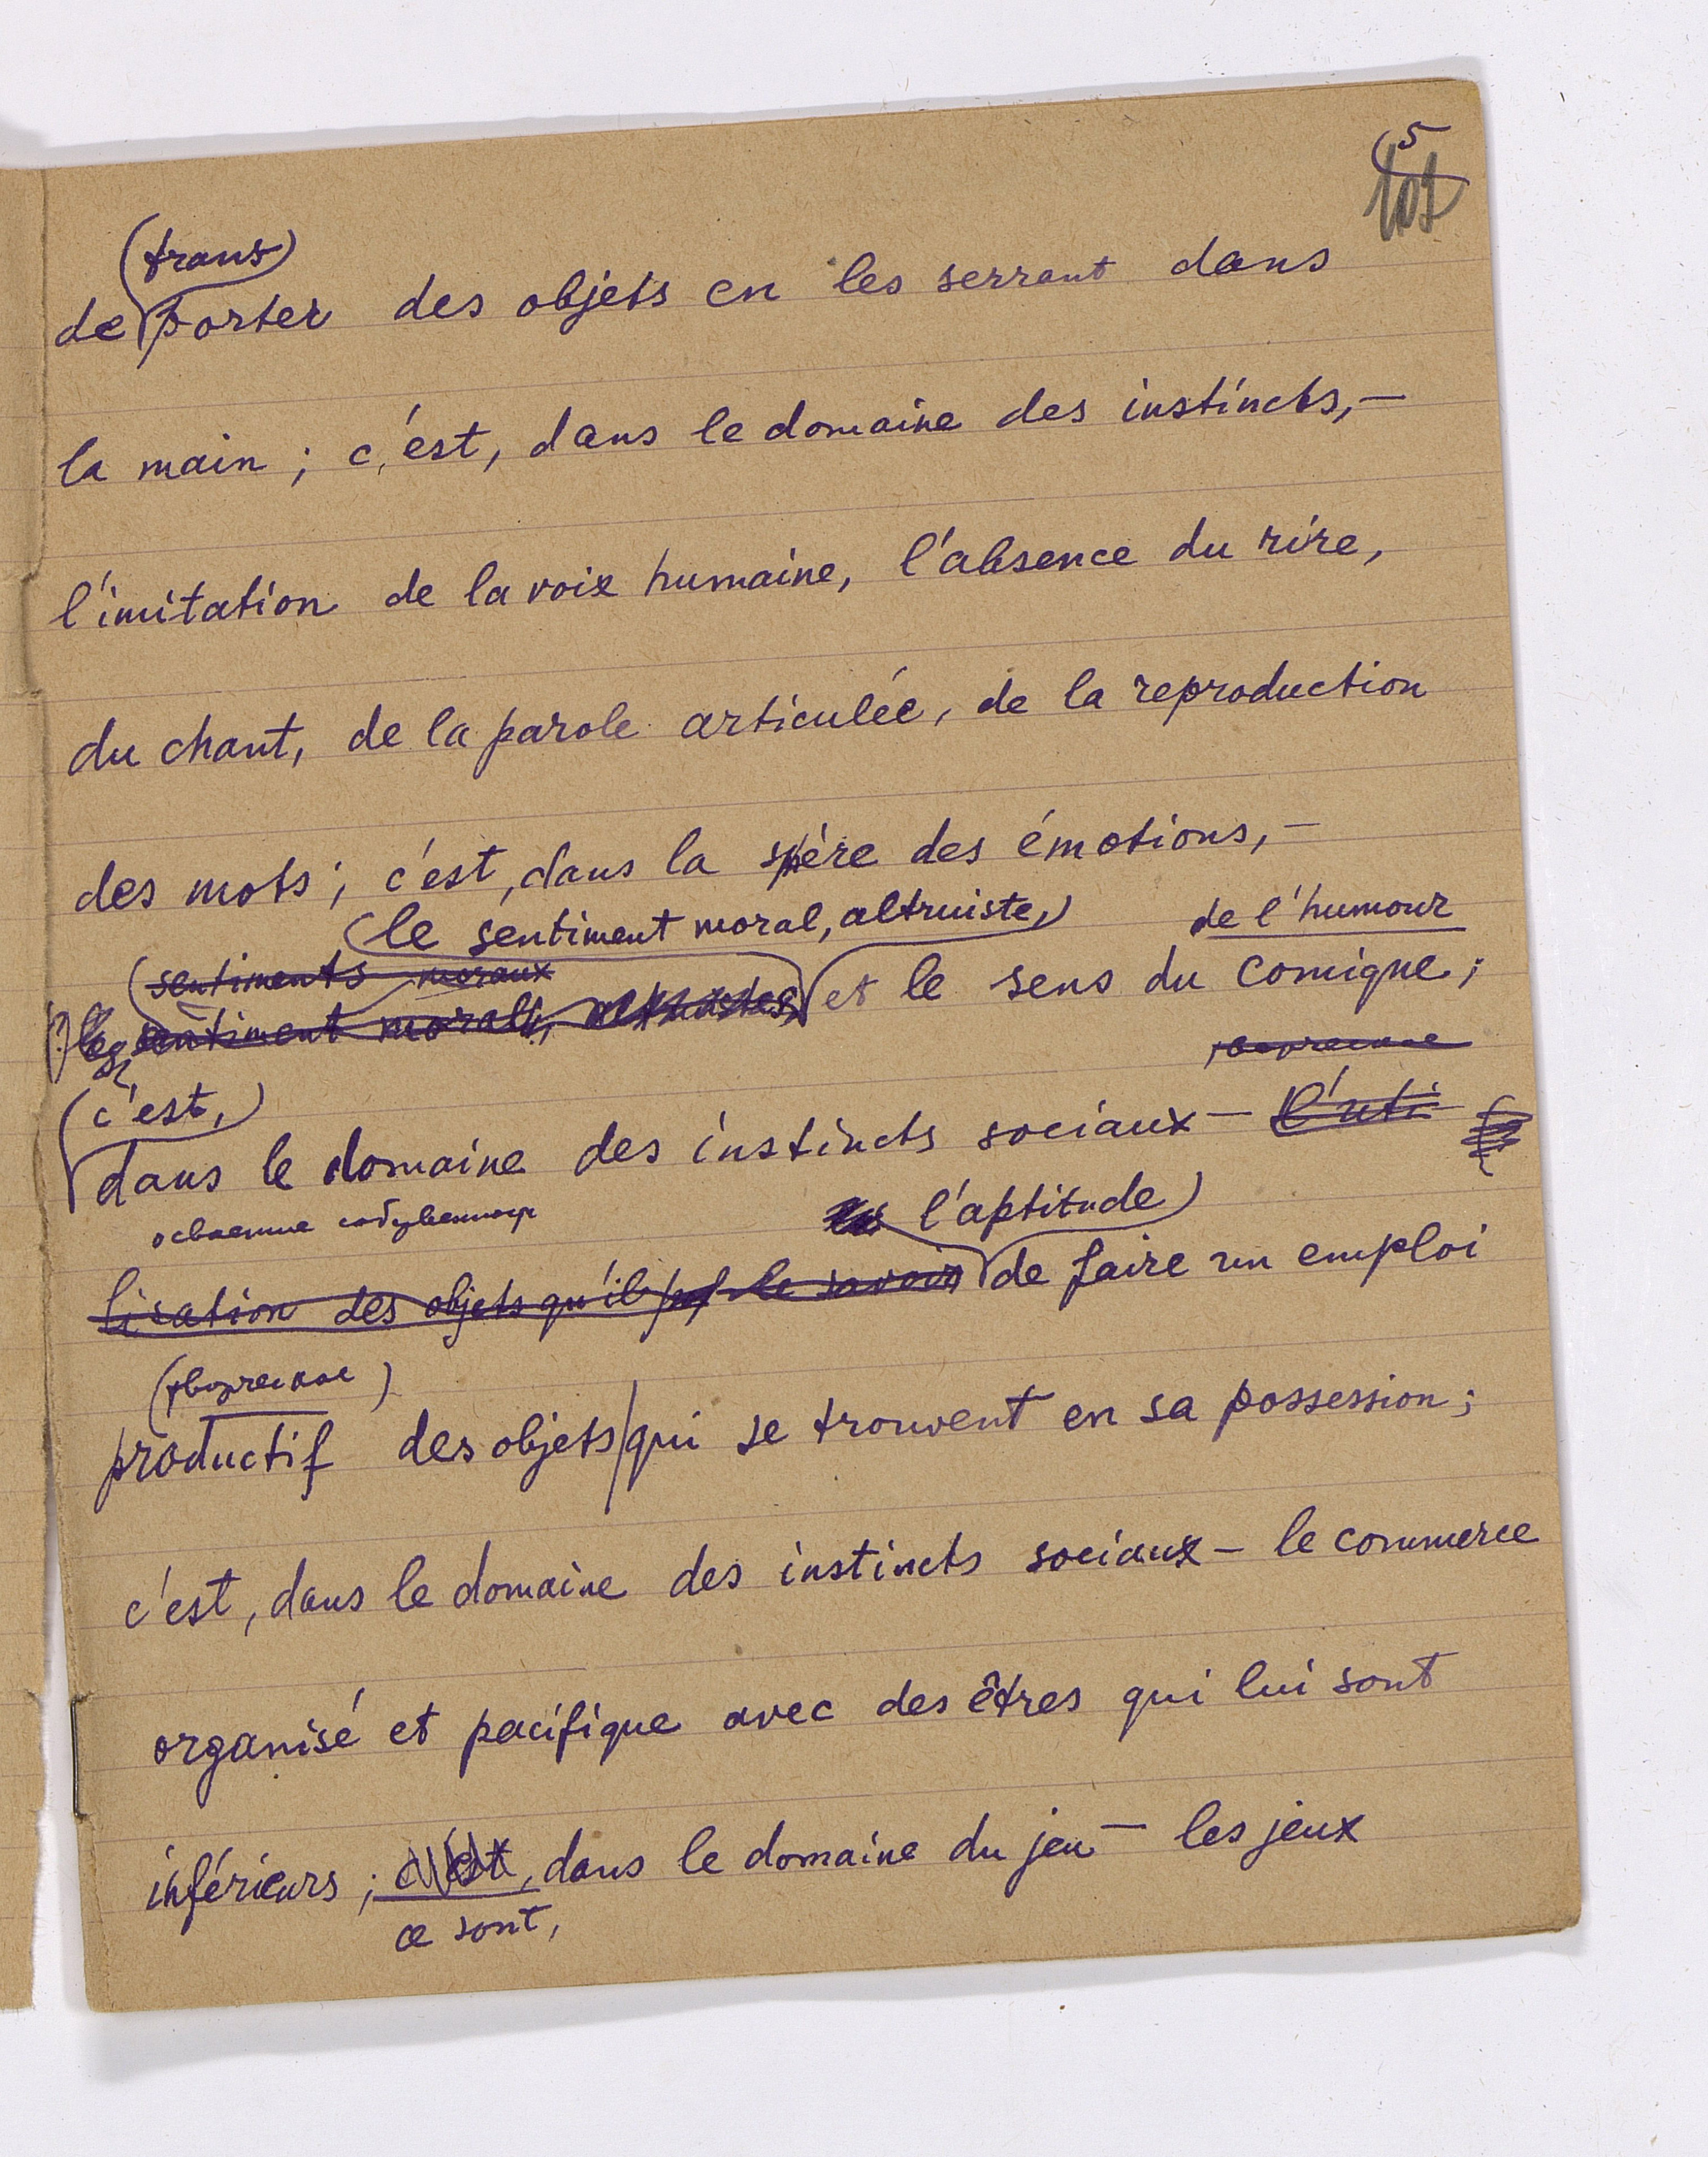 5
101
(trans)
de porter des objets en les serrant dans
la main ; c'est, dans le domaine des instincts, —
l'imitation de la voix humaine, l'absence du rire,
du chant, de la parole articulée, de la reproduction
des mots ; c'est, dans la sphère des émotions, —
(le sentiment moral, altruiste,) de l'humour
sentiments moraux
sentiment moral, altruistes, et le sens du comique ;
(c'est,)
dans le domaine des instincts sociaux — l'uti
l'aptitude)
lisation des objets qu'il le savoir de faire un emploi
(творческое)
productif des objets qui se trouvent en sa possession ;
c'est, dans le domaine des instincts sociaux — le commerce
organisé et pacifique avec des êtres qui lui sont
inférieurs ; c'est, dans le domaine du jeu — les jeux
ce sont,